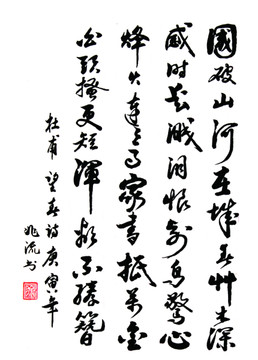 國破山河在城春草木深
感时花溅泪恨别鸟驚心
烽火連三月家書抵萬金
白頭搔更短渾欲不勝簪
杜甫望春诗庚寅年
兆流书